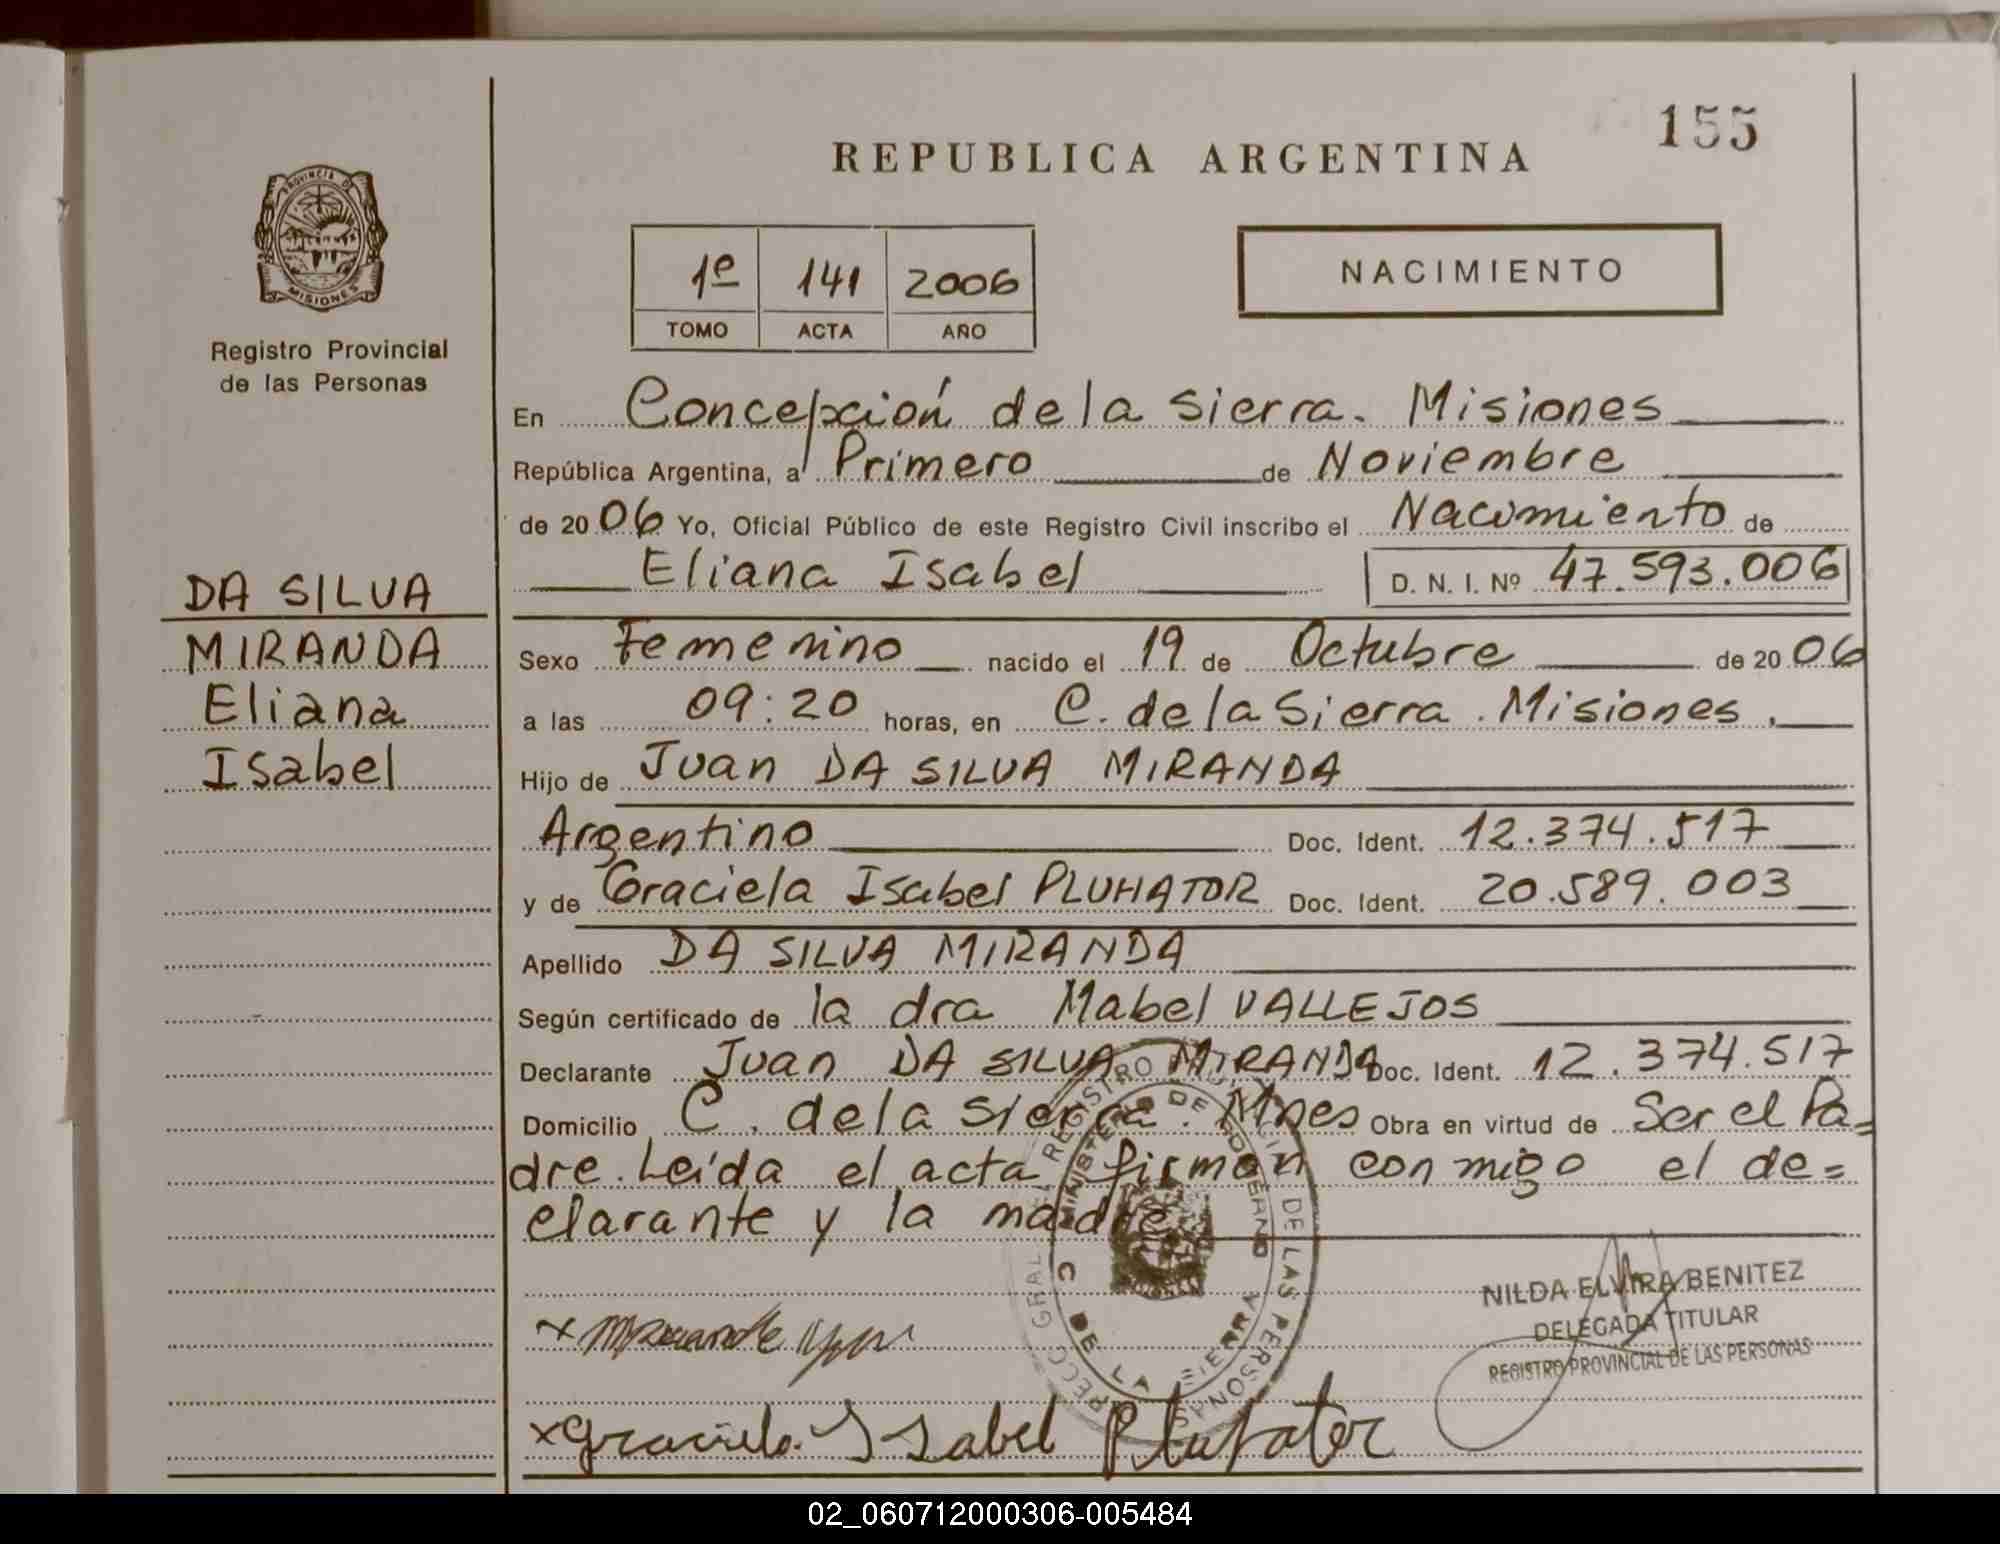 155
REPUBLICA ARGENTINA
PROVINCIA DE
MISIONES
Registro Provincial
de las Personas
1º 141 2006
TOMO ACTA AÑO
NACIMIENTO
En Concepción de la Sierra. Misiones
República Argentina, a Primero de Noviembre
de 2006 Yo, Oficial Público de este Registro Civil inscribo el Nacimiento de
Eliana Isabel D. N. I. Nº 47.593.006
DA SILVA
MIRANDA
Eliana
Isabel
Sexo Femenino nacido el 19 de Octubre de 2006
a las 09:20 horas, en C. de la Sierra. Misiones.
Hijo de Juan DA SILVA MIRANDA
Argentino Doc. Ident. 12.374.517
y de Graciela Isabel PLUHATOR Doc. Ident. 20.589.003
Apellido DA SILVA MIRANDA
Según certificado de la dra Mabel VALLEJOS
Declarante Juan DA SILVA MIRANDA Doc. Ident. 12.374.517
Domicilio C. de la Sierra. Mnes Obra en virtud de Ser el Pa=
dre. Leída el acta firman conmigo el de=
clarante y la madre
MINISTERIO DE GOBIERNO
C DE LA SIERRA
NILDA ELVIRA BENITEZ
DELEGADA TITULAR
REGISTRO PROVINCIAL DE LAS PERSONAS
x Graciela Isabel Pluhator
02_060712000306-005484